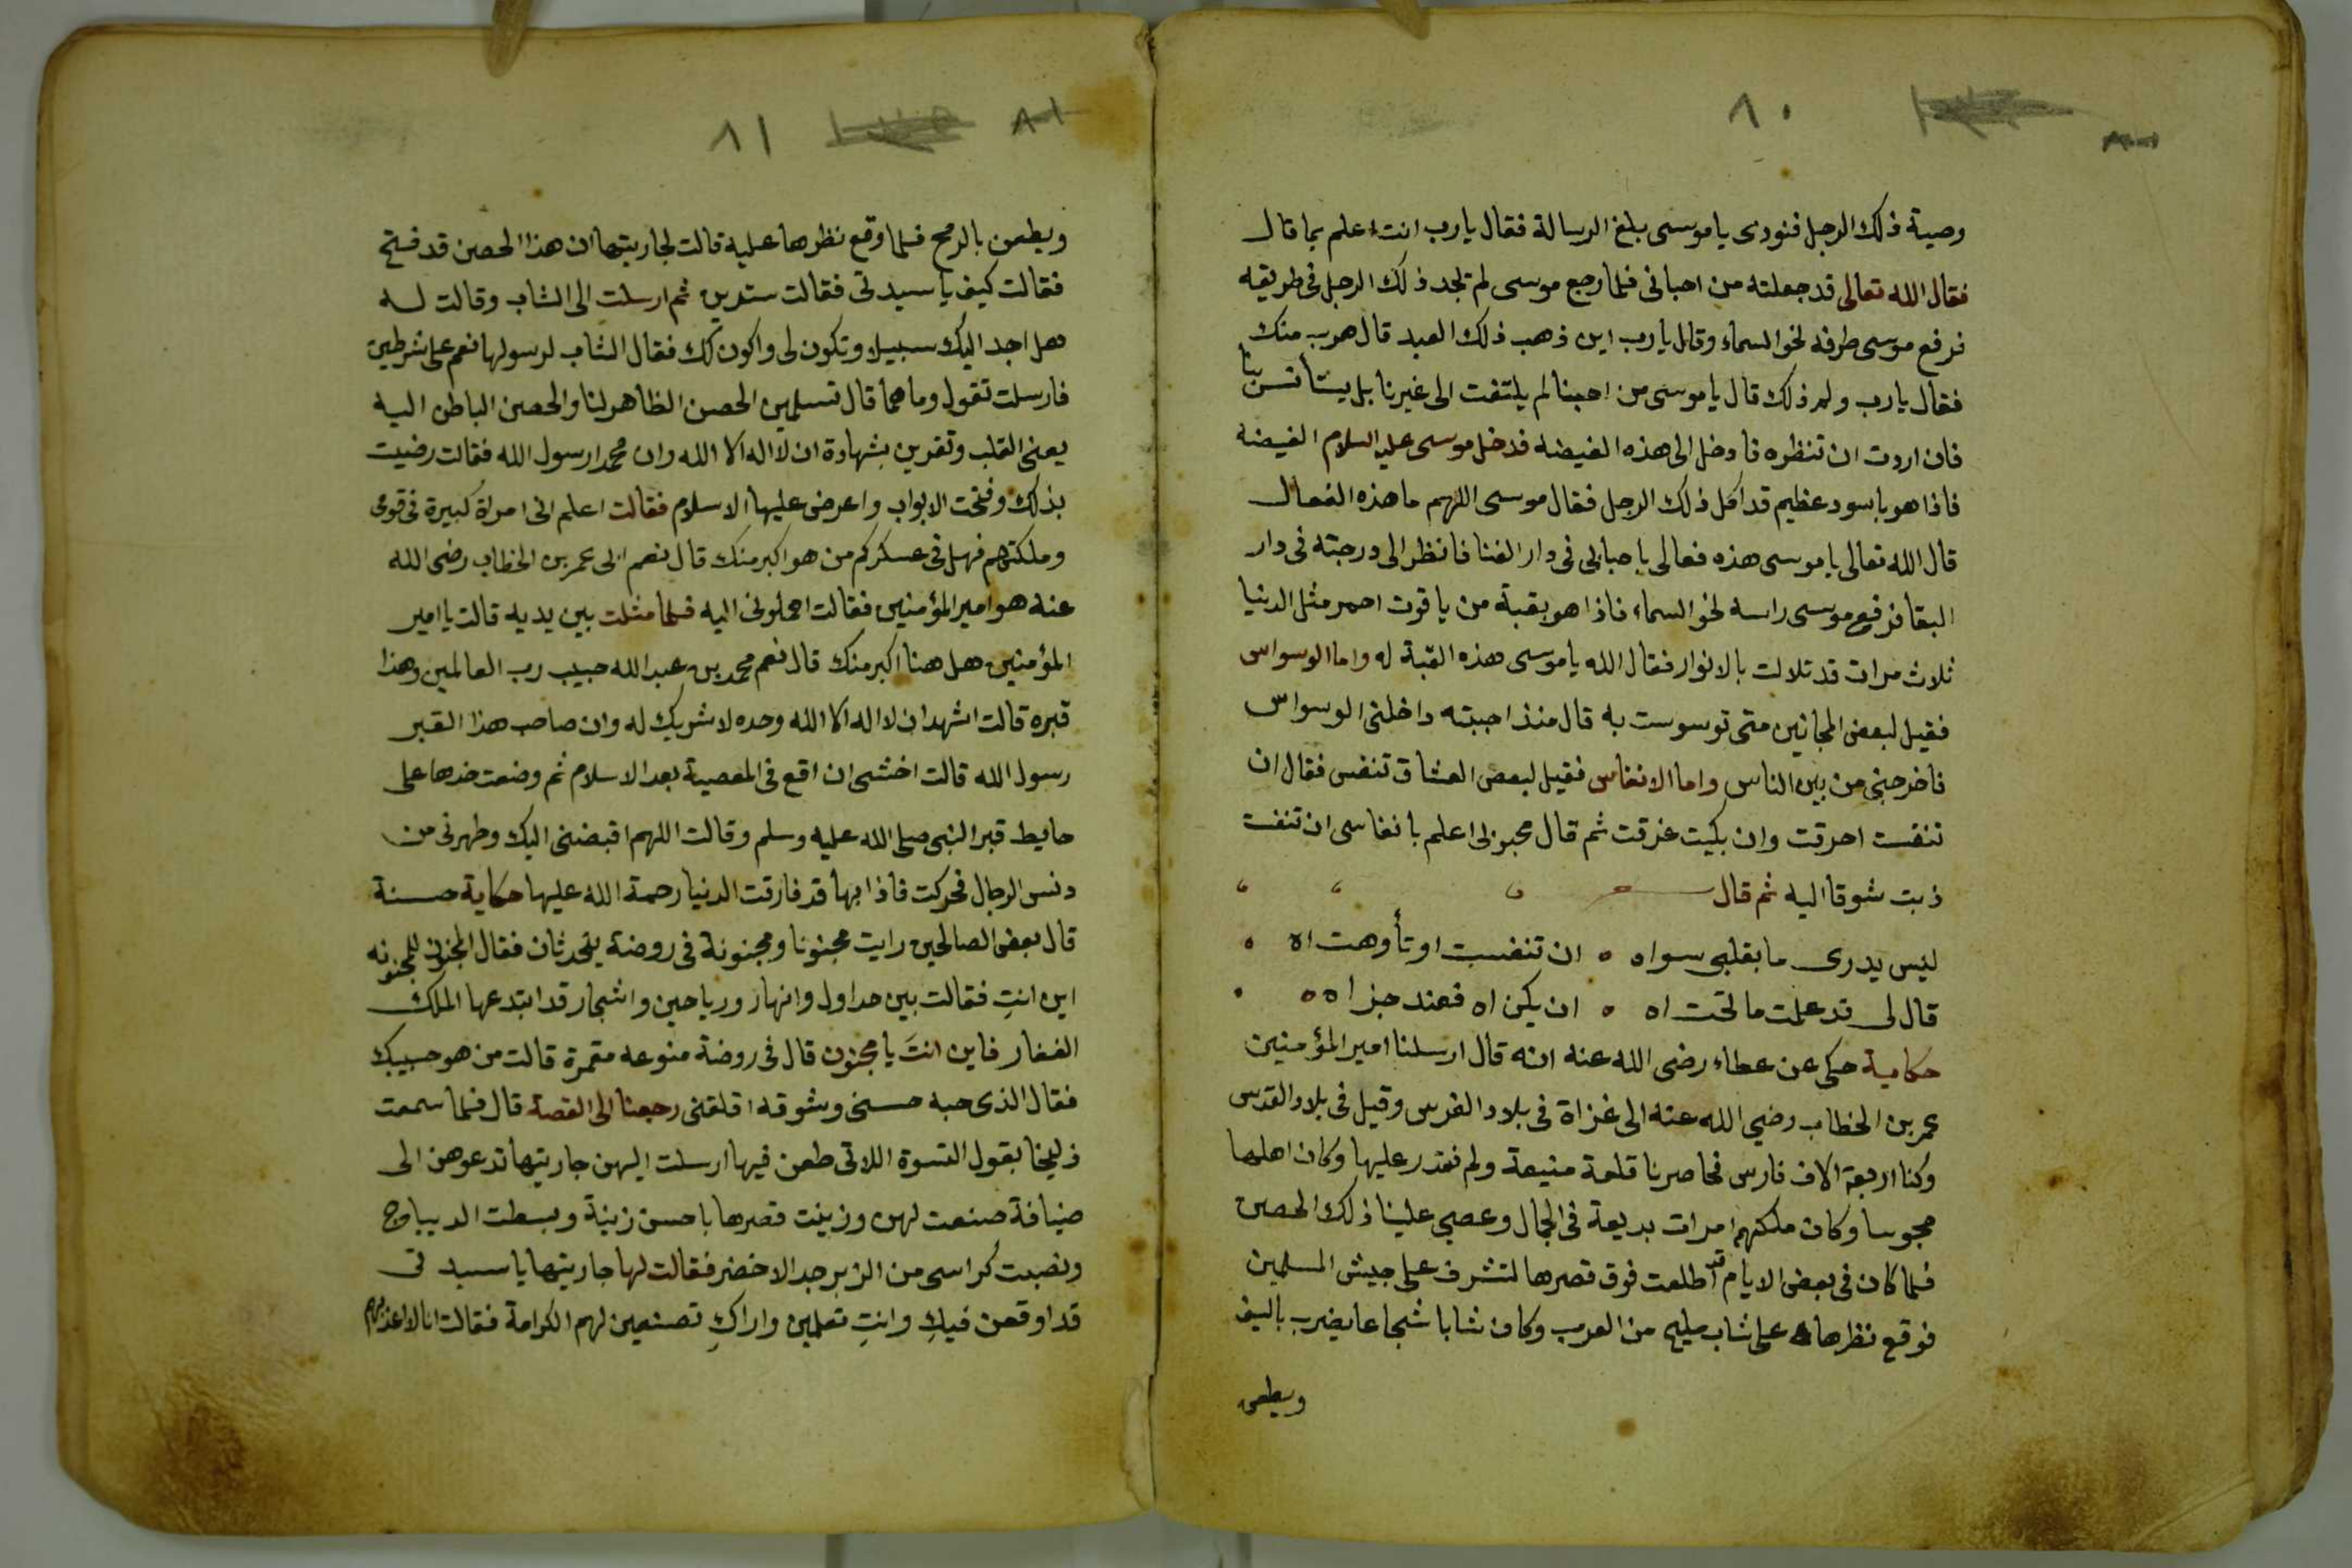 ٨٠
وصية ذلك الرجل فنودى يا موسى بلغ الرسالة فقال يا رب انت اعلم بما قال
فقال الله تعالى قد جعلته من احبائى فلما رجع موسى لم تجد ذلك الرجل فى طريقه
فرفع موسى طرفه نحو السماء وقال يا رب اين ذهب ذلك العبد قال هرب منك
فقال يا رب ولم ذلك قال يا موسى من احبنا لم يلتفت الى غيرنا بل يستأنس بنا
فان اردت ان تنظره فادخل الى هذه الغيضه فدخل موسى عليه السلام الغيضه
فاذا هو باسود عظيم قد اكل ذلك الرجل فقال موسى اللهم ما هذه الفعال
قال الله تعالى يا موسى هذه فعالى باحبابى فى دار الفنا فانظر الى درجته فى دار
البقا فرفع موسى راسه نحو السماء فاذا هو بقبة من ياقوت احمر مثل الدنيا
ثلاث مرات قد تلالت بالانوار فقال الله يا موسى هذه القبة له واما الوسواس
فقيل لبعض المجانين متى توسوست به قال منذ احببته داخلنى الوسواس
فاخرجنى من بين الناس واما الانفاس فقيل لبعض العشاق تنفس فقال ان
تنفست احرقت وان بكيت غرقت ثم قال محبوبى اعلم بانفاسى ان تنفست
ذبت شوقا اليه ثم قال
ليس يدرى ما بقلبى سواه ان تنفست او تأوهت اه
قال لى قد علمت ما تحت اه ان يكن اه فعند جزاه
حكاية حكى عن عطاء رضى الله عنه انه قال ارسلنا امير المؤمنين
عمر بن الخطاب رضي الله عنه الى غزاة فى بلاد الفرس وقيل فى بلاد القدس
وكنا اربعة الاف فارس فحاصرنا قلعة منيعة ولم نقدر عليها وكان اهلها
مجوسا وكان ملكتهم امرات بديعة فى الجمال وعصي علينا ذلك الحصن
فلما كان فى بعض الايام قد اطلعت فوق قصرها لتشرف على جيش المسلمين
فوقع نظرها على شاب مليح من العرب وكان شابا شجاعا يضرب بالسيف
ويطعن
٨١
ويطعن بالرمح فلما وقع نظرها عليه قالت لجاريتها ان هذا الحصن قد فتح
فقالت كيف يا سيدتى فقالت سترين ثم ارسلت الى الشاب وقالت له
هل اجد اليك سبيلا وتكون لى واكون لك فقال الشاب لرسولها نعم على شرطين
فارسلت تقول وما هما قال تسلمين الحصن الظاهر لنا والحصن الباطن اليه
يعنى القلب وتقرين بشهادة ان لا اله الا الله وان محمدا رسول الله فقالت رضيت
بذلك وفتحت الابواب واعرض عليها الاسلام فقالت اعلم انى امراة كبيرة فى قومى
وملكتهم فهل فى عسكركم من هو اكبر منك قال نعم ابى عمر بن الخطاب رضى الله
عنه هو امير المؤمنين فقالت احملونى اليه فلما مثلت بين يديه قالت يا امير
المؤمنين هل هنا اكبر منك قال نعم محمد بن عبد الله حبيب رب العالمين وهذا
قبره قالت اشهد ان لا اله الا الله وحده لا شريك له وان صاحب هذا القبر
رسول الله قالت اخشى ان اقع فى المعصية بعد الاسلام ثم وضعت خدها على
حايط قبر النبى صلى الله عليه وسلم وقالت اللهم اقبضنى اليك وطهرنى من
دنس الرجال فحركت فاذا بها قد فارقت الدنيا رحمة الله عليها حكاية حسنة
قال بعض الصالحين رايت مجنونا ومجنونة فى روضة يتحدثان فقال المجنون للمجنونه
اين انتِ فقالت بين جداول وانهار ورياحين واشجار قد ابتدعها الملك
الغفار فاين انتَ يا مجنون قال فى روضة منوعه مقمرة قالت من هو حبيبك
فقال الذى حبه حسنى وشوقه اقلقنى رجعنا الى القصة قال فلما سمعت
زليخا بقول النسوة اللاتى طعن فيها ارسلت اليهن جاريتها تدعوهن الى
ضيافة صنعت لهن وزينت قصرها باحسن زينة وبسطت الديباج
ونصبت كراسى من الزبرجد الاخضر فقالت لها جاريتها يا سيدتى
قد اوقعن فيكِ وانتِ تعلمين واراكِ تصنعين لهم الكرامة فقالت انا لا اعذبهم